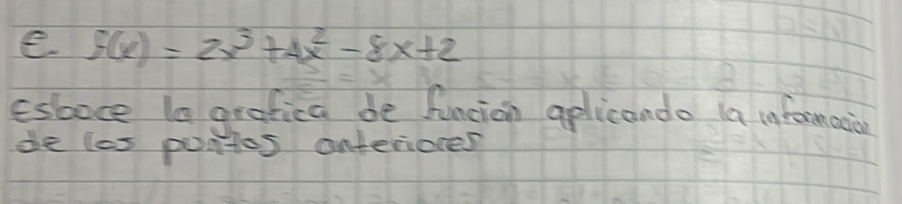 e. f(x) = 2x³ + 4x² - 8x + 2
Esboce la grafica de función aplicando la informacion
de los puntos anteriores